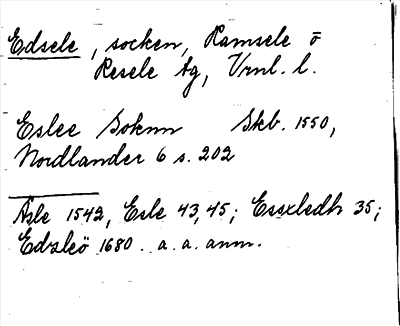 Edsele, socken, Ramsele o
Resele tg, Vrnl. l.
Eslee Soknn Skb. 1550,
Nordlander 6 s. 202
Äsle 1542, Esle 43, 45; Essxledh 35;
Edzleö 1680. a. a. anm.